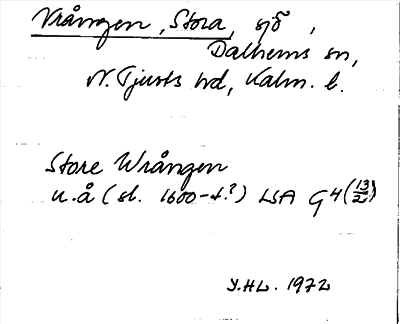 Vrången, Stora, sjö,
Dalhems sn,
N. Tjusts hd, Kalm. l.
Store Wrången
u.å (sl. 1600-t.?) LSA G4 (13/2)
Y.HL. 1972